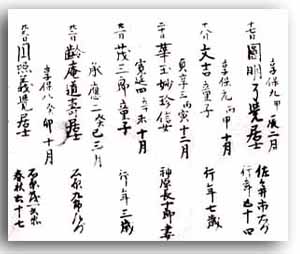 享保九甲辰二月
圓明了覺居士
佐々井市
行年七十四
享保元丙申十月
文吉童子
行年七歳
貞享三丙寅十二月
華玉妙珍信女
神原長十郎妻
寛延四辛未十月
茂三郎童子
行年三歳
承應二癸巳三月
齢庵道壽居士
石原九郎
享保八癸卯十月
圓照義覺居士
石原茂
春秋六十七